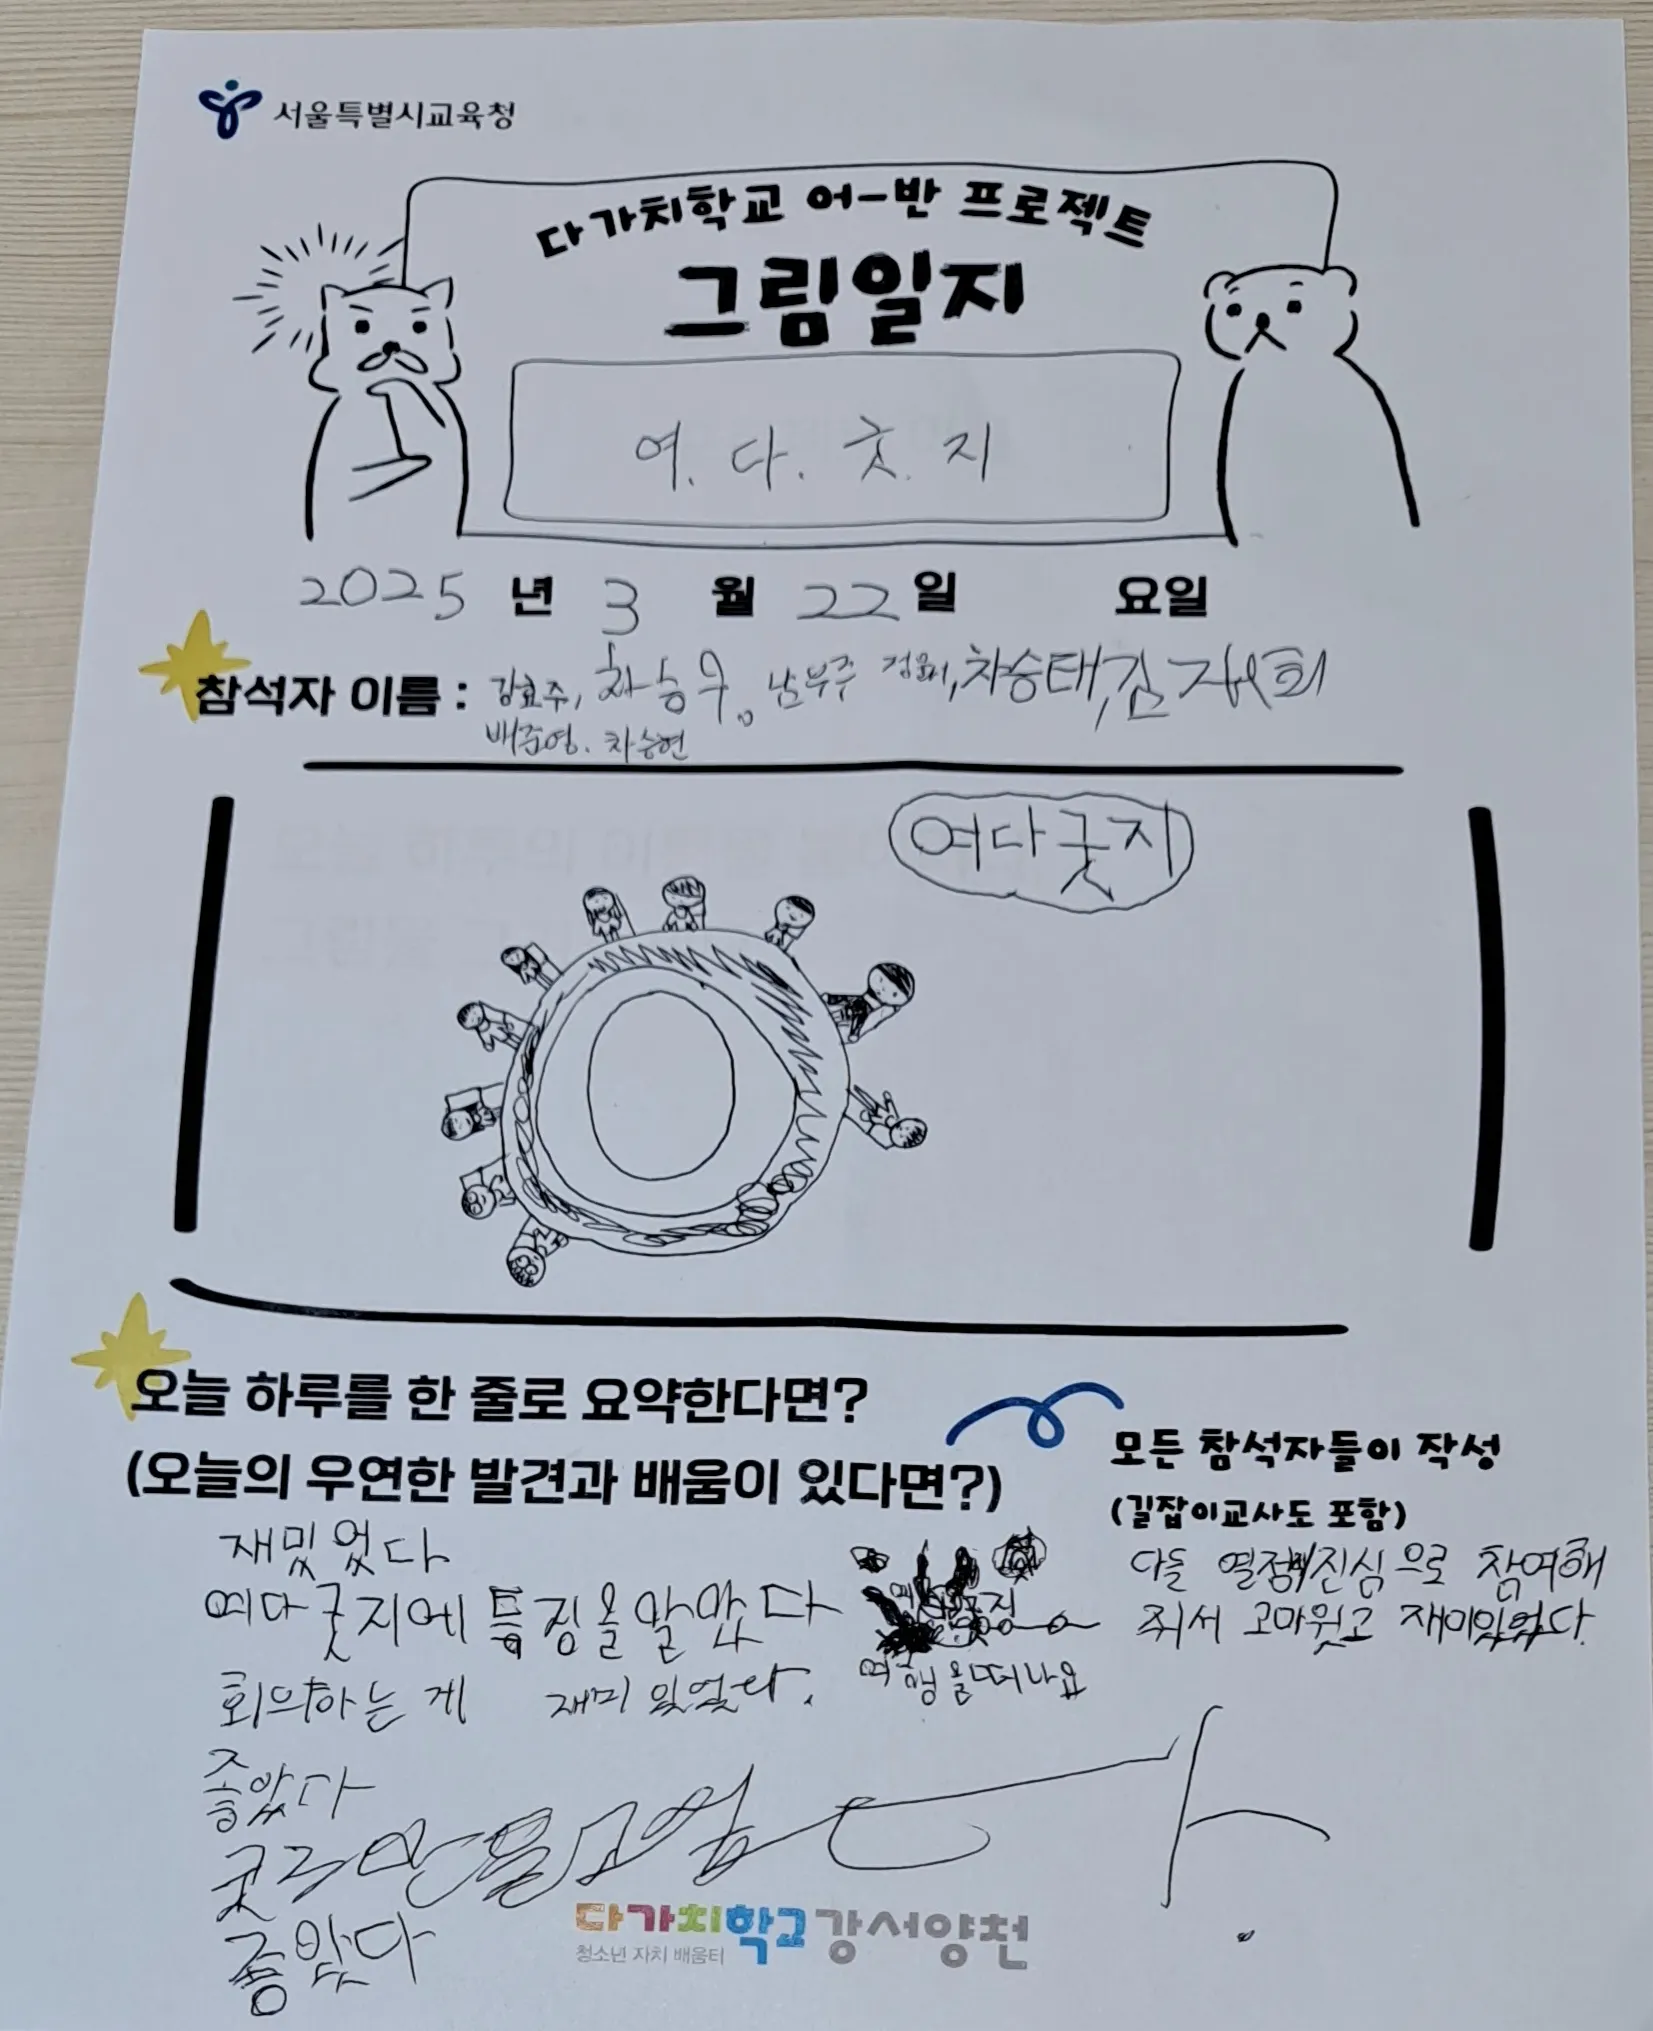 서울특별시교육청
다가치학교 어-반 프로젝트
그림일지
여. 다. 굿. 지
2025 년 3 월 22 일 요일
참석자 이름 : 강효주, 차승우, 남부주 차승태, 김
배준영. 차승현
여다굿지
오늘 하루를 한 줄로 요약한다면?
(오늘의 우연한 발견과 배움이 있다면?)
모든 참석자들이 작성
(길잡이교사도 포함)
재밌었다
여다굿지에 특징을 알았다
회의하는 게 재미있었다.
좋았다
좋았다
여행을떠나요
다들 진심으로 참여해
줘서 고마웠고 재미있었다.
다가치학교강서양천
청소년 자치 배움터